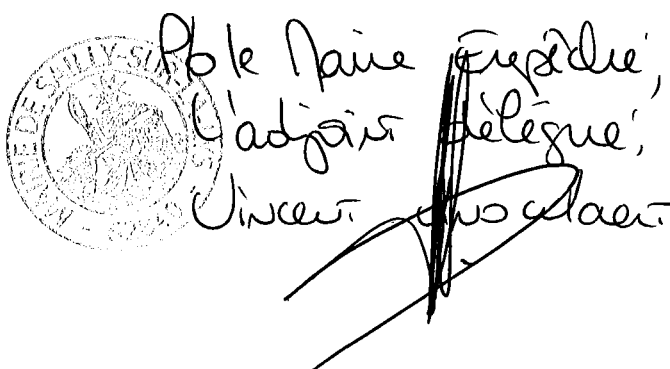 MAIRIE DE SAILLY-SUR-LA-LYS
P/o le Maire Empêché,
L'adjoint délégué,
Vincent